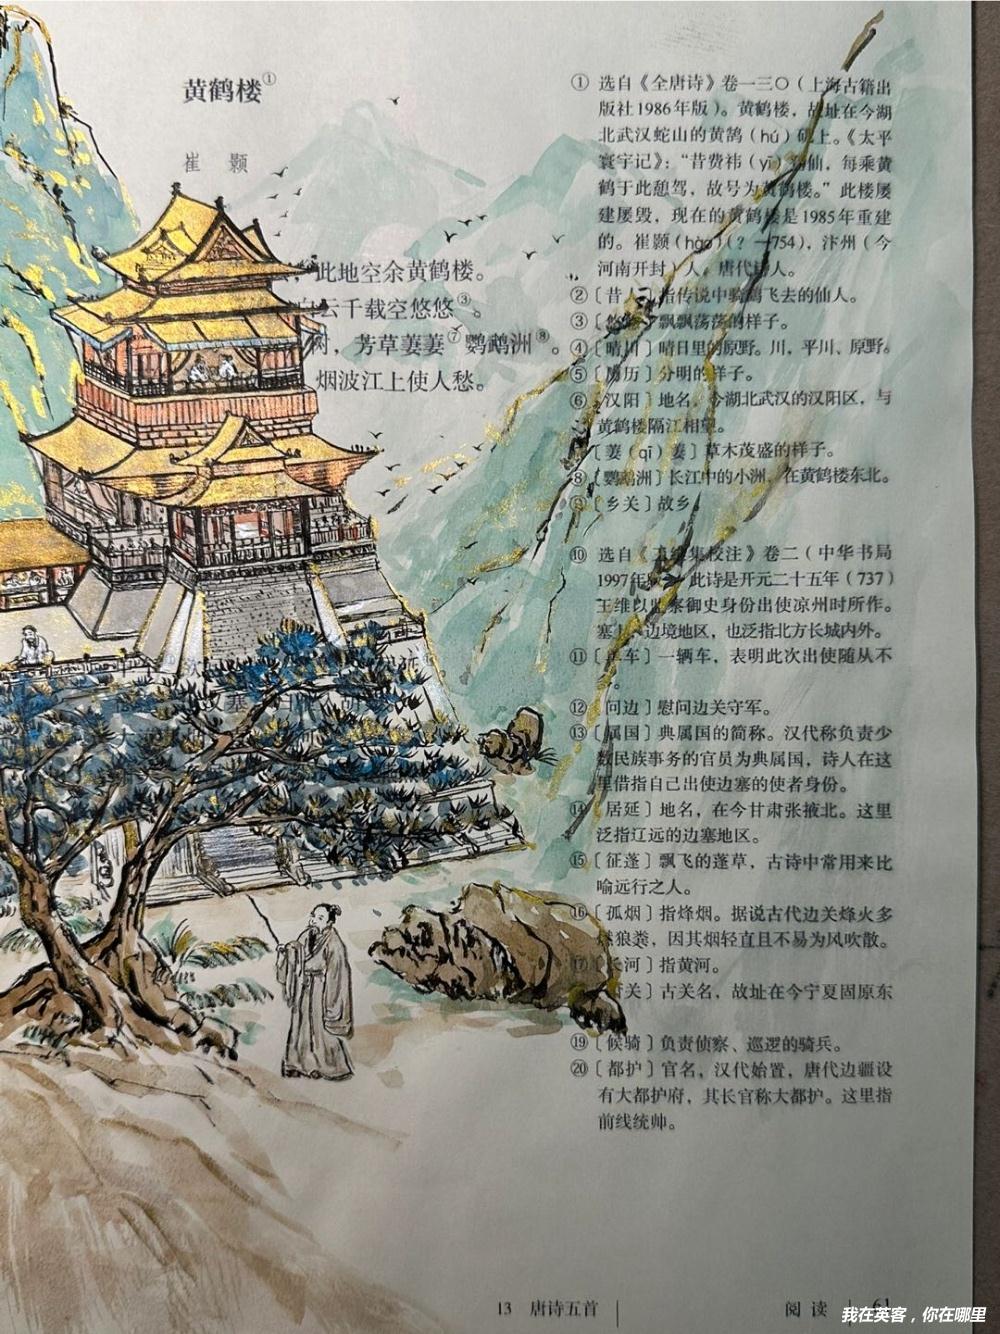 黄鹤楼①
崔 颢
此地空余黄鹤楼。
白云千载空悠悠③。
树，芳草萋萋⑦鹦鹉洲⑧。
烟波江上使人愁。
塞
① 选自《全唐诗》卷一三〇（上海古籍出
版社1986年版）。黄鹤楼，故址在今湖
北武汉蛇山的黄鹄（hú）矶上。《太平
寰宇记》：“昔费祎（yī）登仙，每乘黄
鹤于此憩驾，故号为黄鹤楼。”此楼屡
建屡毁，现在的黄鹤楼是1985年重建
的。崔颢（hào）（？—754），汴州（今
河南开封）人。唐代诗人。
②〔昔人〕指传说中骑鹤飞去的仙人。
③〔悠悠〕飘飘荡荡的样子。
④〔晴川〕晴日里的原野。川，平川、原野。
⑤〔历历〕分明的样子。
⑥〔汉阳〕地名，今湖北武汉的汉阳区，与
黄鹤楼隔江相望。
⑦〔萋（qī）萋〕草木茂盛的样子。
⑧〔鹦鹉洲〕长江中的小洲，在黄鹤楼东北。
⑨〔乡关〕故乡。
⑩ 选自《王维集校注》卷二（中华书局
1997年版）。此诗是开元二十五年（737）
王维以监察御史身份出使凉州时所作。
塞上，边境地区，也泛指北方长城内外。
⑪〔单车〕一辆车，表明此次出使随从不
。
⑫〔问边〕慰问边关守军。
⑬〔属国〕典属国的简称。汉代称负责少
数民族事务的官员为典属国，诗人在这
里借指自己出使边塞的使者身份。
⑭〔居延〕地名，在今甘肃张掖北。这里
泛指辽远的边塞地区。
⑮〔征蓬〕飘飞的蓬草，古诗中常用来比
喻远行之人。
⑯〔孤烟〕指烽烟。据说古代边关烽火多
燃狼粪，因其烟轻直且不易为风吹散。
⑰〔长河〕指黄河。
关〕古关名，故址在今宁夏固原东
⑲〔候骑〕负责侦察、巡逻的骑兵。
⑳〔都护〕官名，汉代始置，唐代边疆设
有大都护府，其长官称大都护。这里指
前线统帅。
13 唐诗五首
阅读 61
我在英客，你在哪里